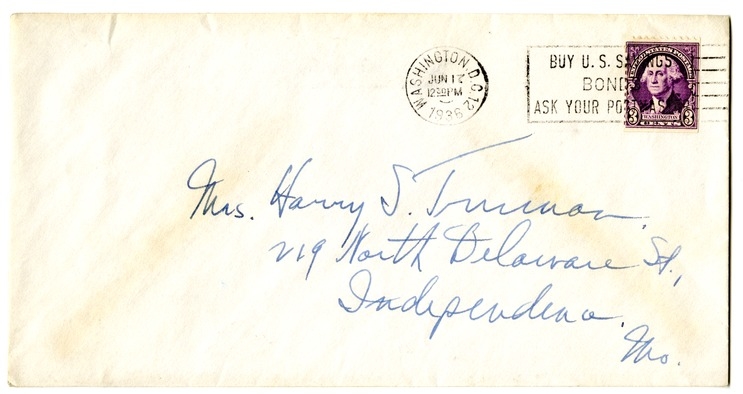 WASHINGTON D.C. 12
JUN 17
12 PM
1936
BUY U.S. SAVINGS
BONDS
ASK YOUR POSTMASTER
UNITED STATES POSTAGE
WASHINGTON
3 CENTS 3
Mrs. Harry S. Truman.
219 North Delaware St.,
Independence.
Mo.